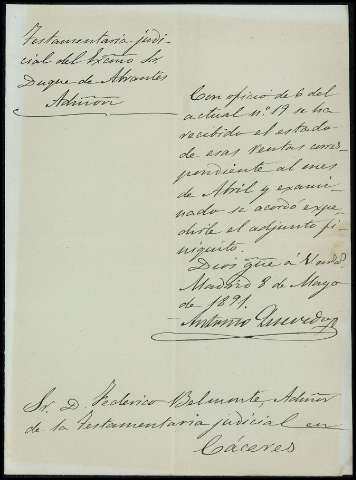 Testamentaria judi-
cial del Excmo Sr.
Duque de Abrantes
Admón
Con oficio de 6 del
actual nº 19 se ha
recibido el estado
de esas rentas corres-
pondiente al mes
de Abril y exami-
nado se acordó expe-
dirle el adjunto fi-
niquito.
Dios gue á Vmd.
Madrid 8 de Mayo
de 1891.
Antonio Quevedo
Sr. D. Federico Belmonte, Admor
de la testamentaria judicial en
Cáceres